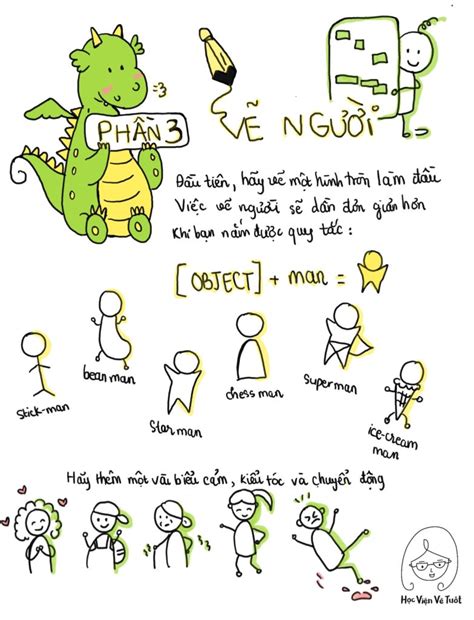 PHẦN 3
VẼ NGƯỜI
Đầu tiên, hãy vẽ một hình tròn làm đầu
Việc vẽ người sẽ dần đơn giản hơn
Khi bạn nắm được quy tắc:
[OBJECT] + man =
stick-man
bean man
star man
chess man
super man
ice-cream
man
Hãy thêm một vài biểu cảm, kiểu tóc và chuyển động
Học Viện Vẽ Tuốt